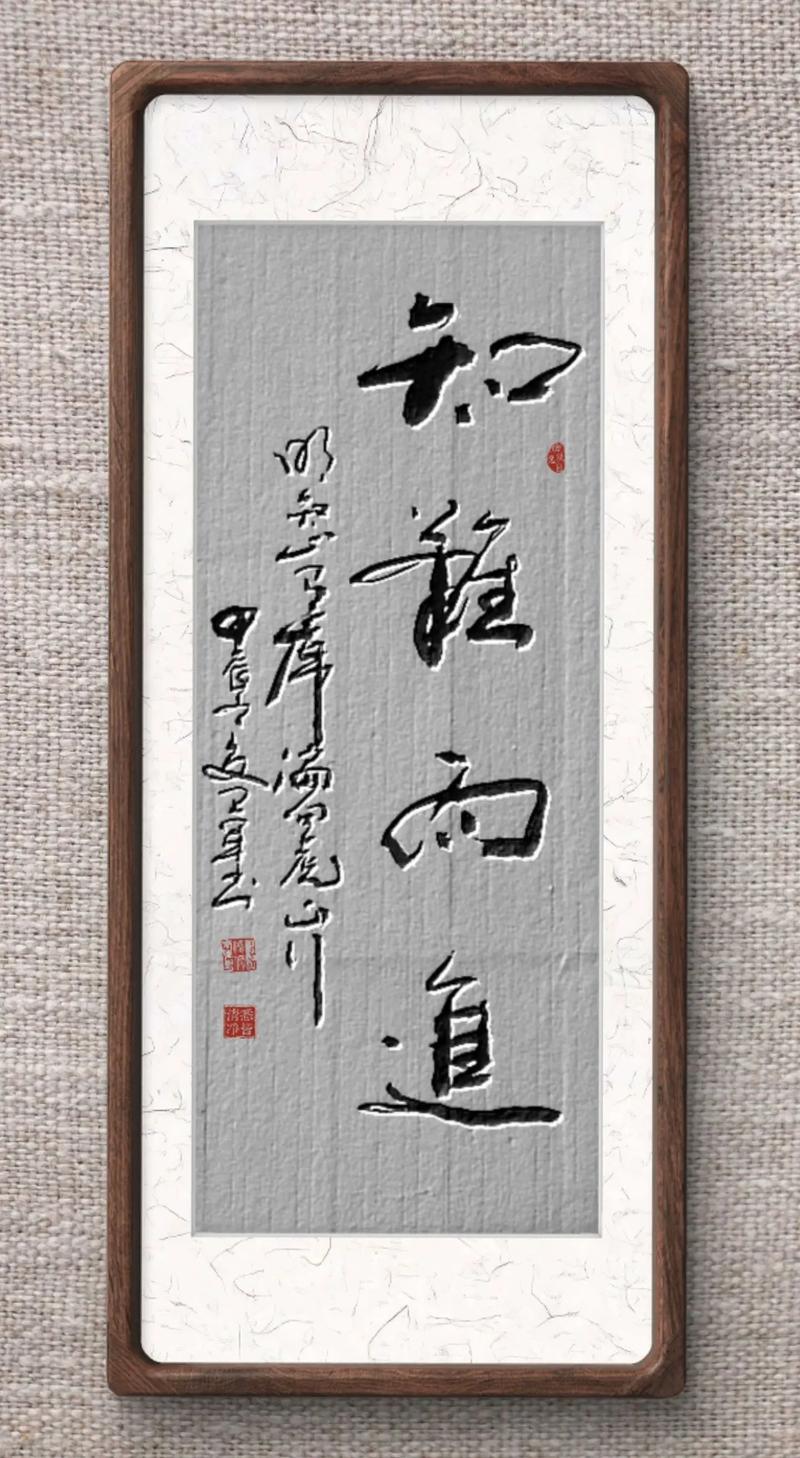 知難而進
明知山有虎偏向虎山行
甲辰